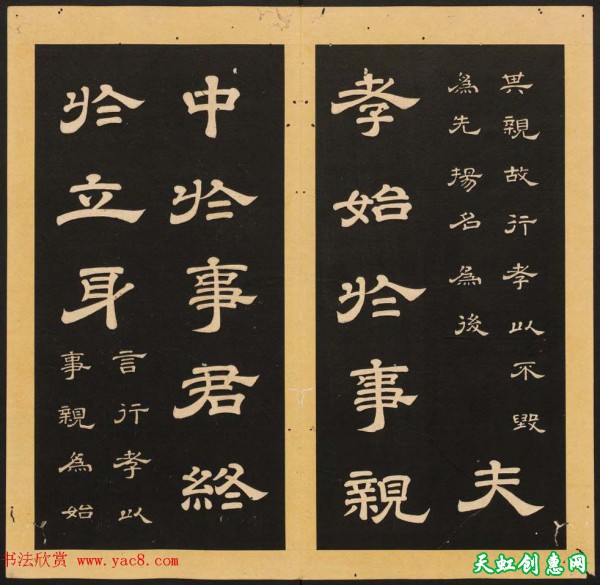 其親故行孝以不毀
為先揚名為後
夫
孝始於事親
中於事君終
於立身
言行孝以
事親為始
书法欣赏 www.yac8.com
天虹创惠网